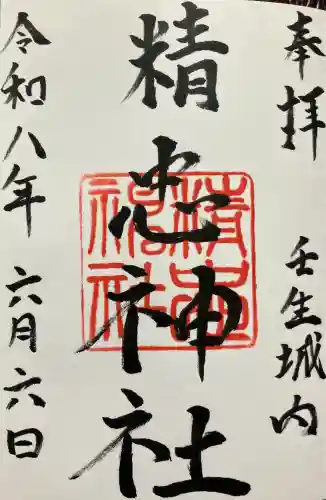 奉拝
壬生城内
精忠神社
精忠神社
令和八年
六月六日